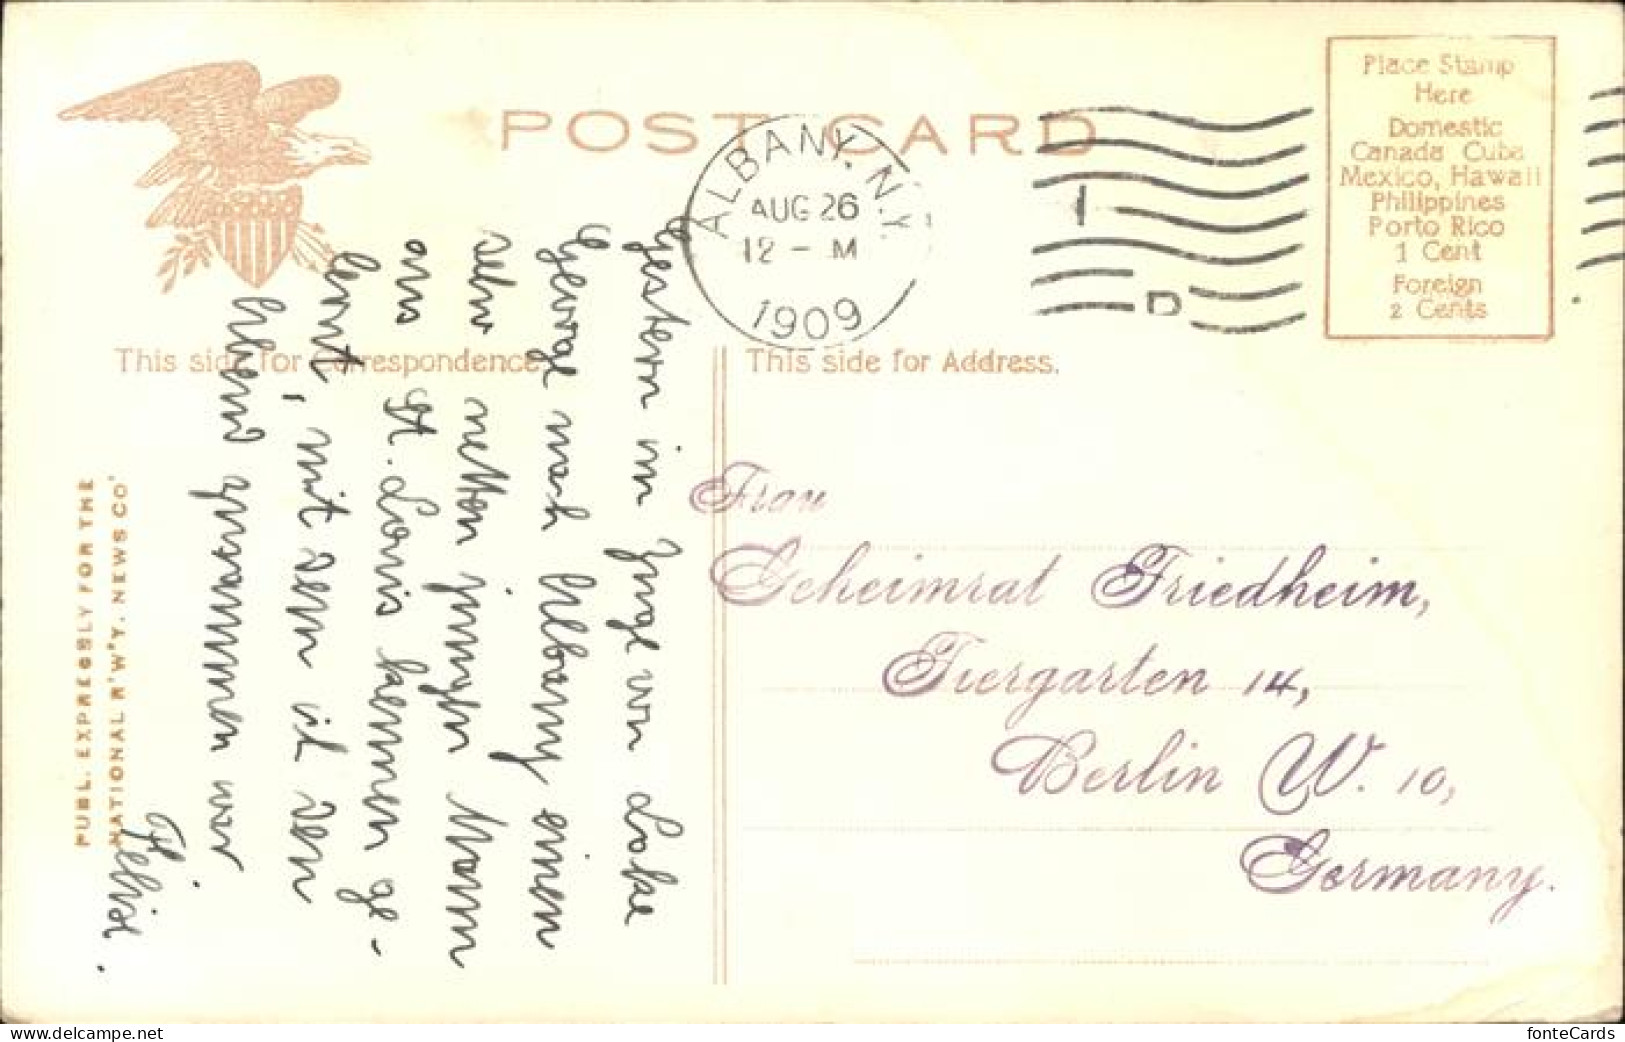 POST CARD
ALBANY, N.Y.
AUG 26
12 - M
1909
1
D
Place Stamp
Here
Domestic
Canada Cuba
Mexico, Hawaii
Philippines
Porto Rico
1 Cent
Foreign
2 Cents
This side for Correspondence.
This side for Address.
PUBL. EXPRESSLY FOR THE
NATIONAL R'W'Y. NEWS CO'
Gestern im Zuge von Lake
George nach Albany einen
sehr netten jungen Mann
aus St. Louis kennen ge-
lernt, mit dem ich den
Abend zusammen war
Felix.
Frau
Geheimrat Friedheim,
Tiergarten 14,
Berlin W. 10,
Germany.
delcampe.net
fonteCards